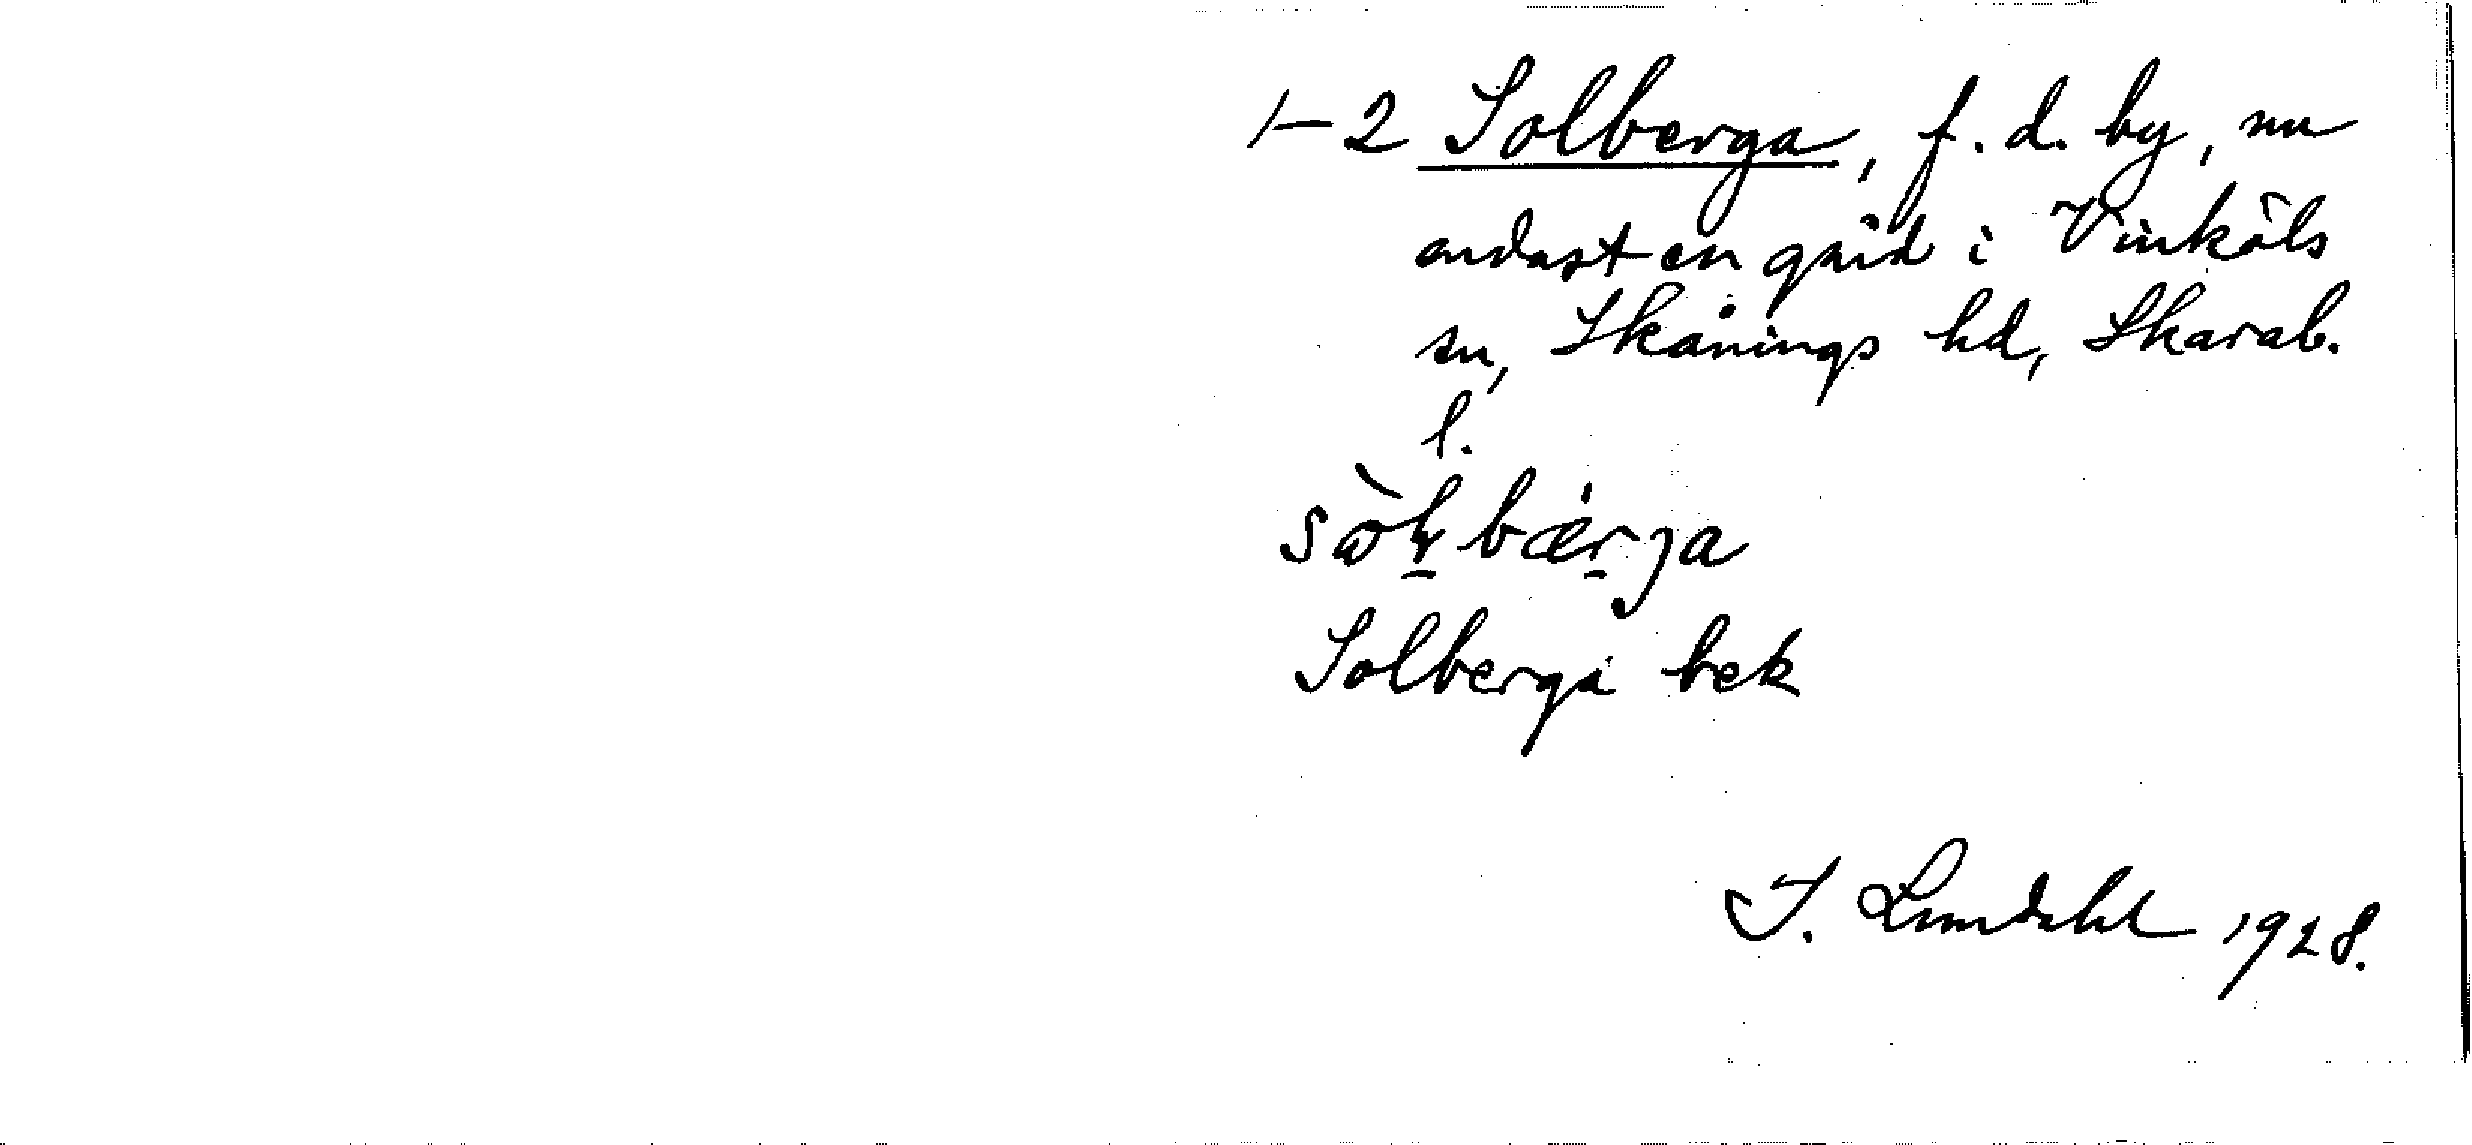 1-2 Solberga, f. d. by, nu
endast en gård i Vinköls
sn, Skånings hd, Skarab.
l.
Solberga bek
I. Lundahl 1928.